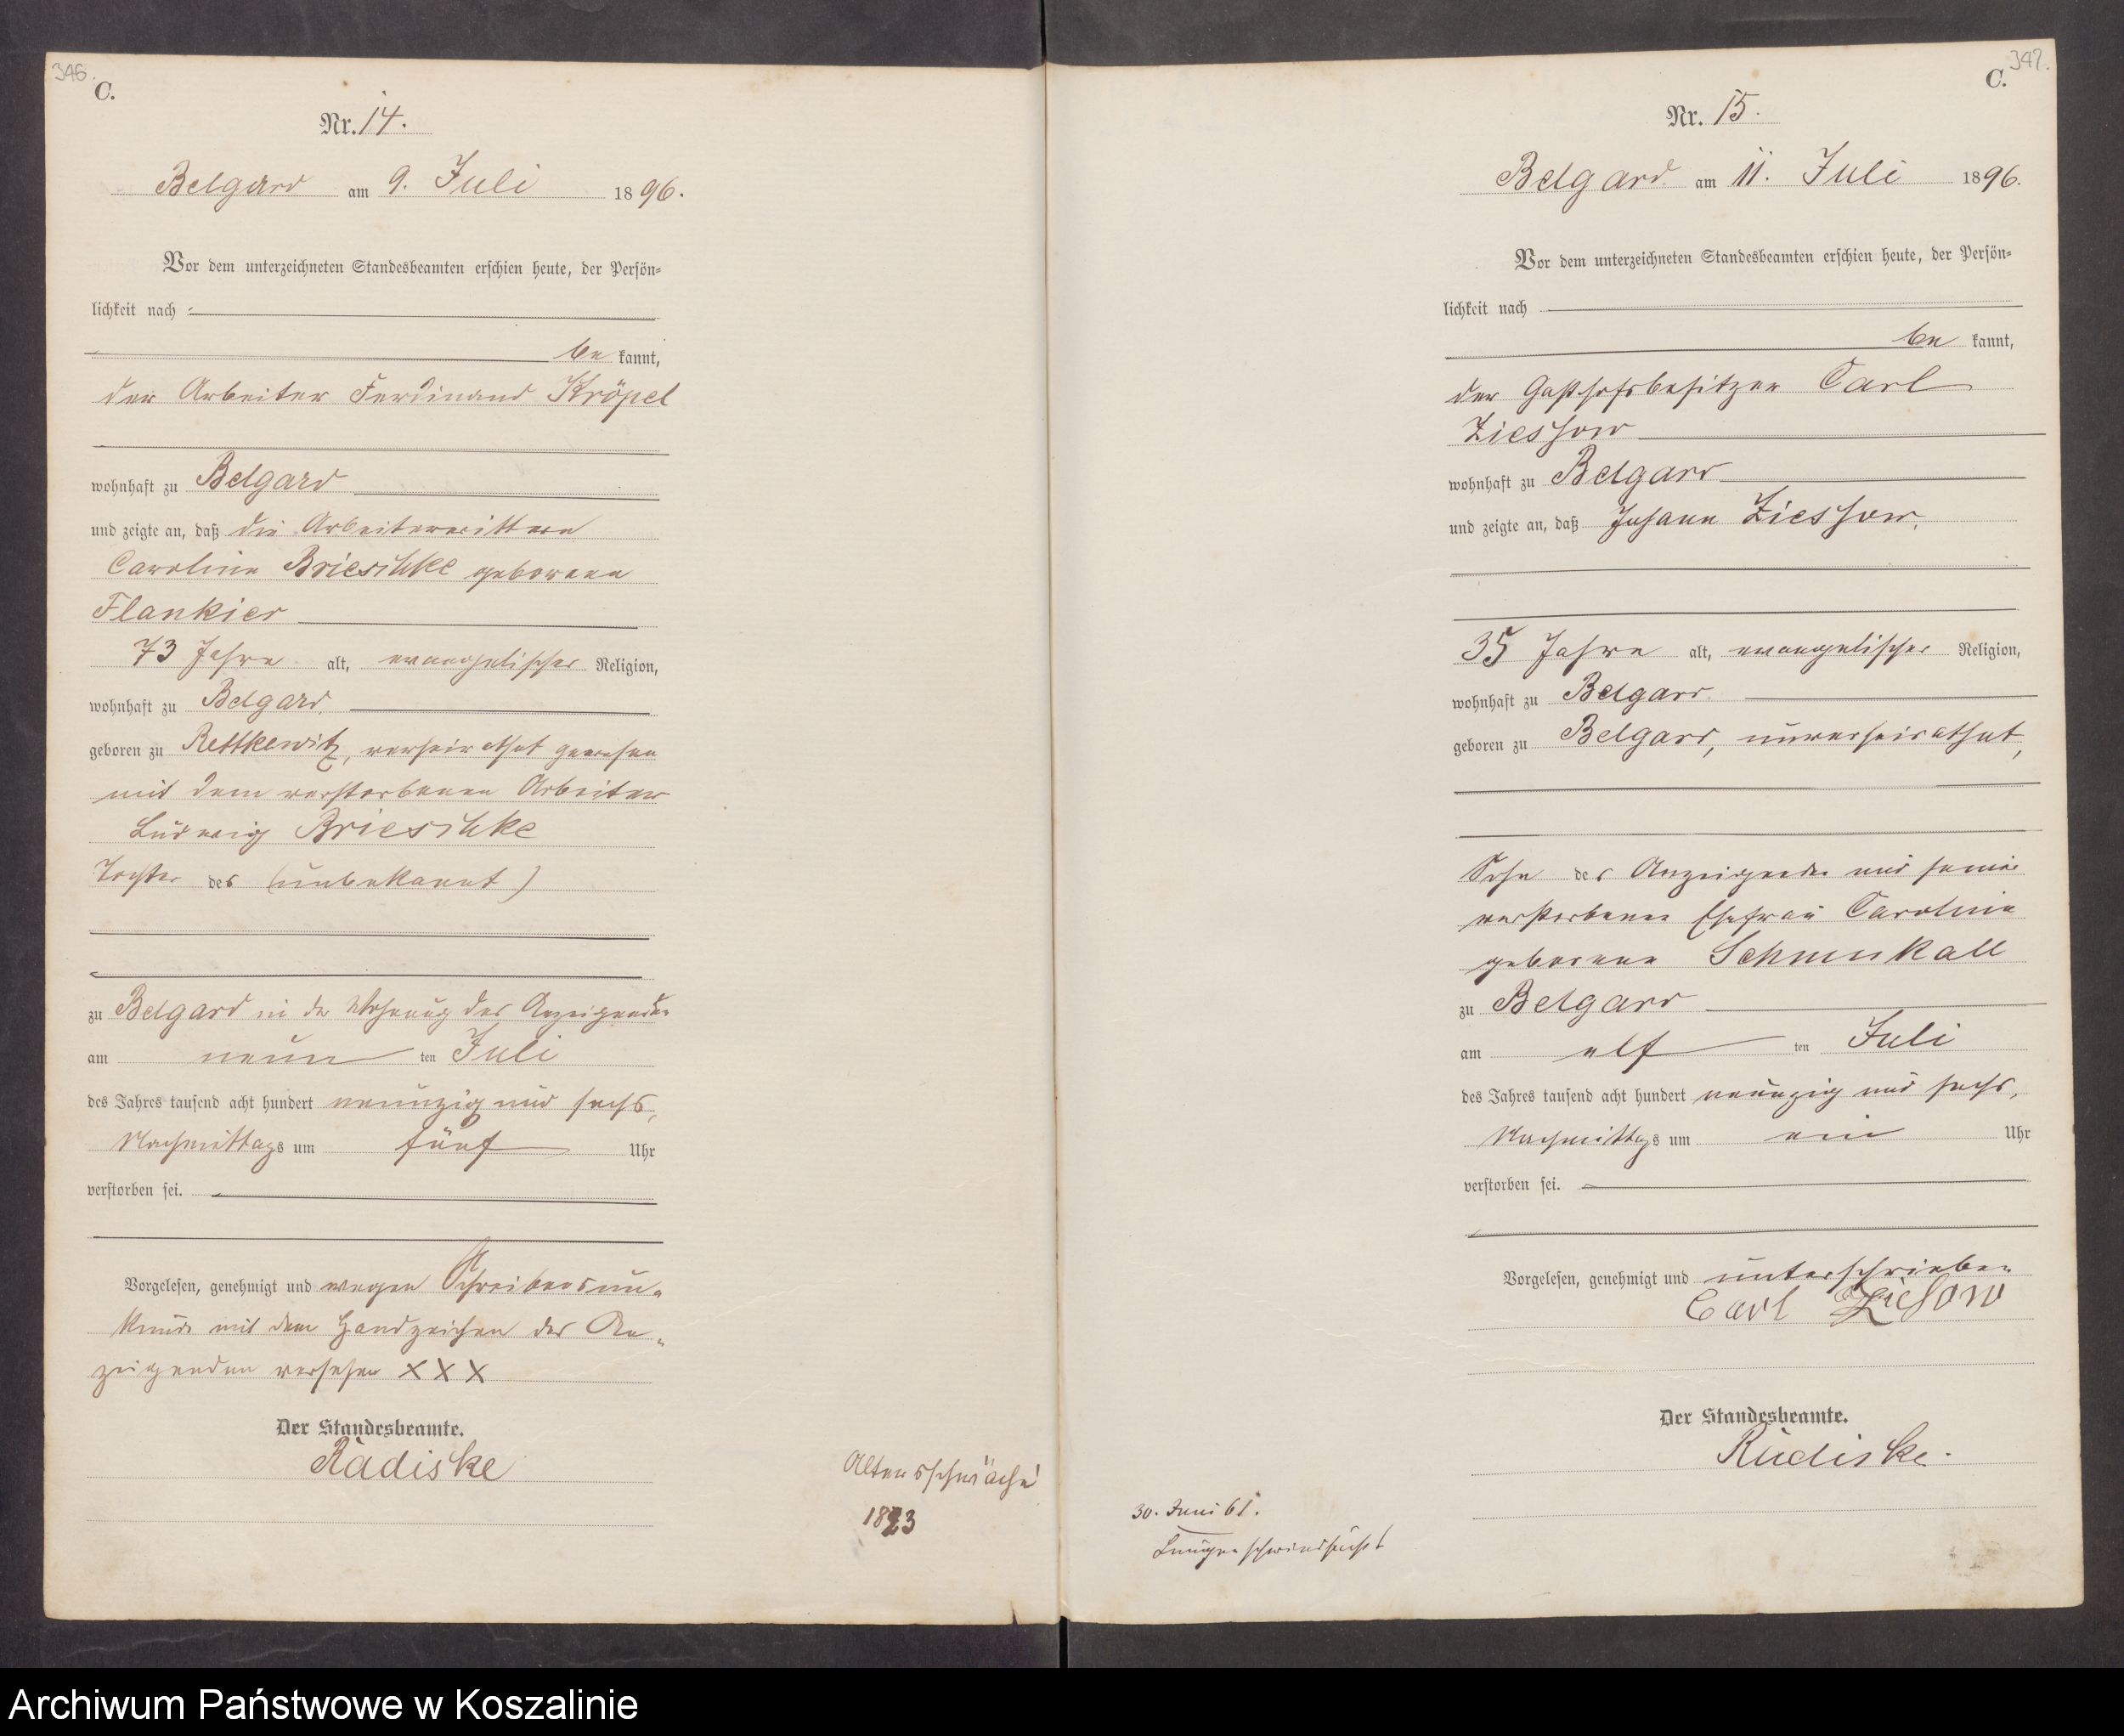 346.
C.
Nr. 14.
Belgard am 9. Juli 1896.
Vor dem unterzeichneten Standesbeamten erschien heute, der Persön-
lichkeit nach
be kannt,
der Arbeiter Ferdinand Kröpel
wohnhaft zu Belgard
und zeigte an, daß die Arbeiterwittwe
Caroline Brieschke geborene
Flankier
73 Jahre alt, evangelischer Religion,
wohnhaft zu Belgard
geboren zu Rettkewitz, verheirathet gewesen
mit dem verstorbenen Arbeiter
Ludwig Brieschke
Tochter des (unbekannt)
zu Belgard in der Wohnung des Anzeigenden
am neun ten Juli
des Jahres tausend acht hundert neunzig und sechs,
Nachmittags um fünf Uhr
verstorben sei.
Vorgelesen, genehmigt und wegen Schreibensun-
kunde mit dem Handzeichen des An-
zeigenden versehen XXX
Der Standesbeamte.
Radiske
Altersschwäche
1823
347.
C.
Nr. 15.
Belgard am 11. Juli 1896.
Vor dem unterzeichneten Standesbeamten erschien heute, der Persön-
lichkeit nach
be kannt,
der Gasthofsbesitzer Carl
Ziessow
wohnhaft zu Belgard
und zeigte an, daß Johann Ziessow,
35 Jahre alt, evangelischer Religion,
wohnhaft zu Belgard
geboren zu Belgard, unverheirathet,
Sohn des Anzeigenden und seiner
verstorbenen Ehefrau Caroline
geborene
zu Belgard
am elf ten Juli
des Jahres tausend acht hundert neunzig und sechs,
Nachmittags um ein Uhr
verstorben sei.
Vorgelesen, genehmigt und unterschrieben
Carl Ziesow
Der Standesbeamte.
Radiske.
30. Juni 61.
Lungenschwindsucht
Archiwum Państwowe w Koszalinie